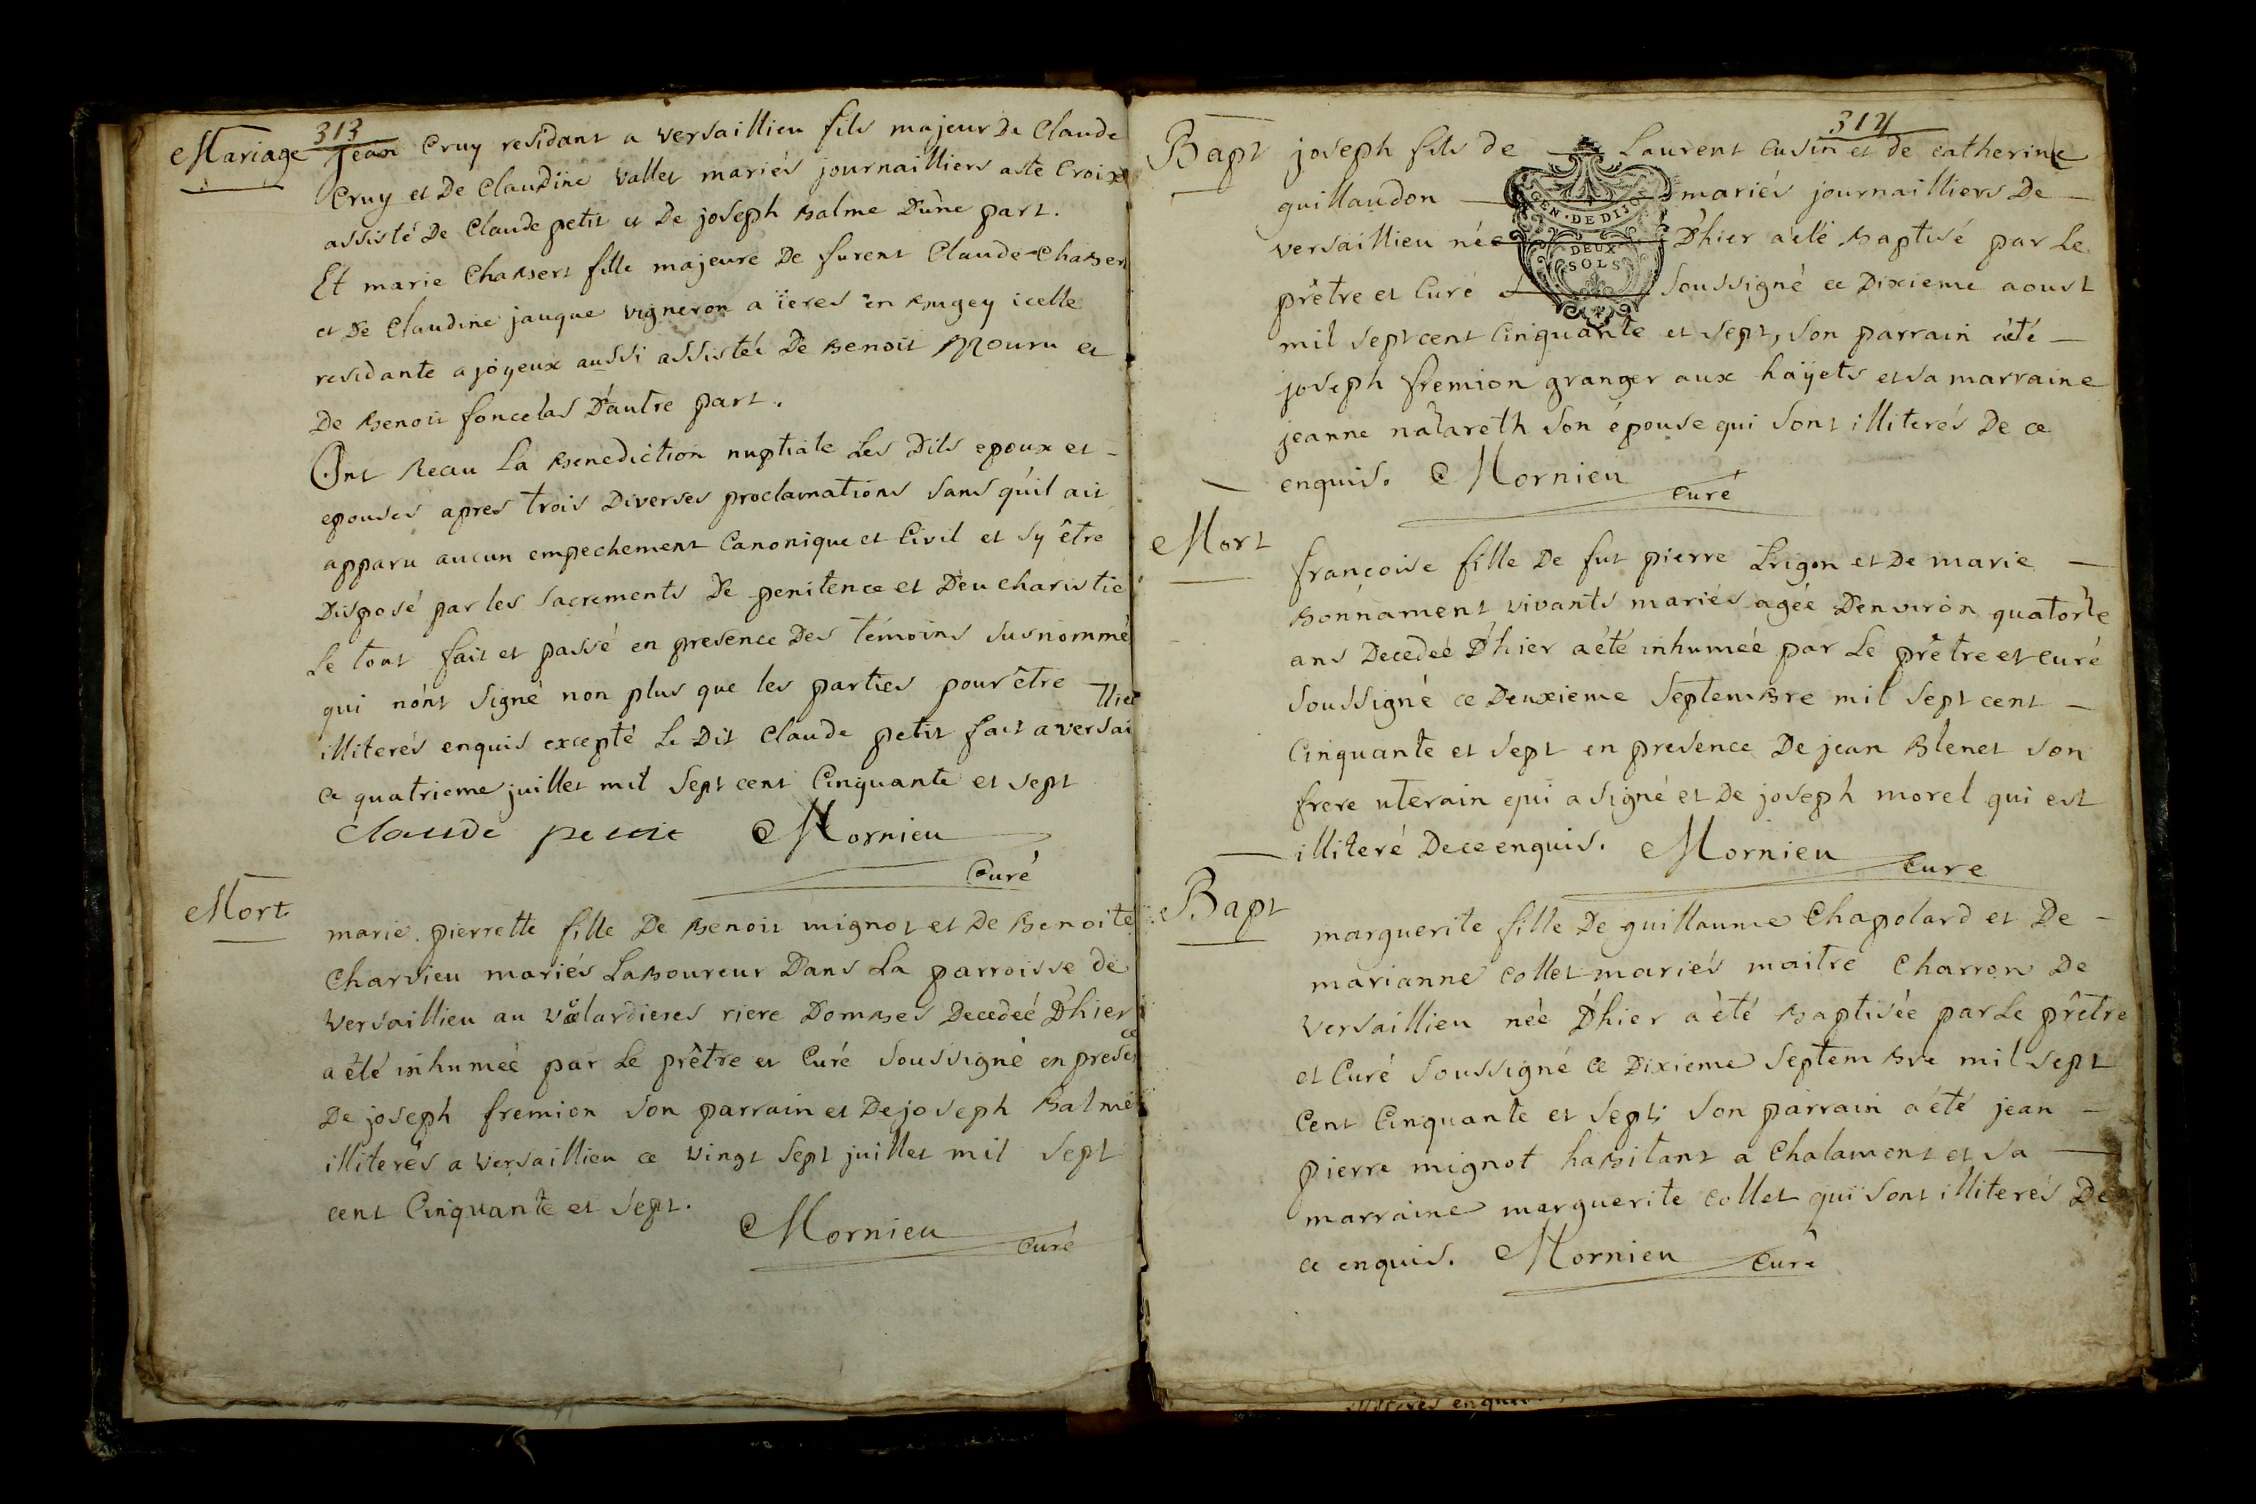 313
Mariage
Jean Cruy residant a versaillieu fils majeur De Claude
Cruy et De Claudine vallet mariés journailliers a ste Croix
assisté De Claude petit et De joseph Balme D'une part.
Et marie Chabert fille majeure De furent Claude Chabert
et De Claudine jauque vigneron a ïeres en Bugey icelle
residante a joyeux aussi assistée De Benoit Mouru et
De Benoit foncelas D'autre part.
Ont Receu La Benediction nuptiale Les Dits epoux et
epouses apres trois Diverses proclamations sans qu'il ait
apparu aucun empechement Canonique et Civil et sy être
Disposé par les sacrements De penitence et D'eucharistie
Le tout fait et passé en presence Des témoins susnommé
qui n'ont signé non plus que les parties pour être
illiterés enquis excepté Le Dit Claude petit fait a versai
llieu
ce quatrieme juillet mil Sept cent Cinquante et sept
Claude petit Mornieu
Curé
Mort
marie pierrette fille De Benoit mignot et De Benoite
Charvieu mariés Laboureur Dans La parroisse de
versaillieu au volardieres riere Dombes Decedeé D'hier
a été inhumeé par Le prêtre et Curé Soussigné en presen
ce
De joseph fremion son parrain et De joseph Balme
illiterés a versaillieu ce vingt sept juillet mil sept
cent Cinquante et sept.
Mornieu
curé
314
Bapt
joseph fils de Laurent Cusin et de catherine
guillaudon mariés journailliers De
GEN · DE DIJON
DEUX
SOLS
versaillieu née D'hier a été Baptisé par Le
prêtre et Curé Soussigné ce Dixieme aoust
mil sept cent Cinquante et sept, son parrain a été
joseph fremion granger aux haÿets et sa marraine
jeanne naZareth son épouse qui sont illiterés De ce
enquis. Mornieu
curé
Mort
françoise fille De fut pierre Lrigon et De marie
Bonnament vivants mariés agée D'environ quatorZe
ans Decedeé D'hier a été inhumeé par Le prêtre et curé
Soussigné ce Deuxieme Septembre mil sept cent
Cinquante et sept en presence De jean Blenet son
frere uterain qui a signé et De joseph morel qui est
illiteré De ce enquis. Mornieu
Cure
Bapt
marguerite fille De guillaume Chapolard et De
marianne collet mariés maitre Charron De
versaillieu née D'hier a été Baptisée par Le prêtre
et Curé Soussigné ce Dixieme Septembre mil sept
Cent Cinquante et sept; son parrain a été jean
pierre mignot habitant a Chalamont et sa
marraine marguerite collet qui sont illiterés De
ce enquis. Mornieu
Curé
illiterés enquis